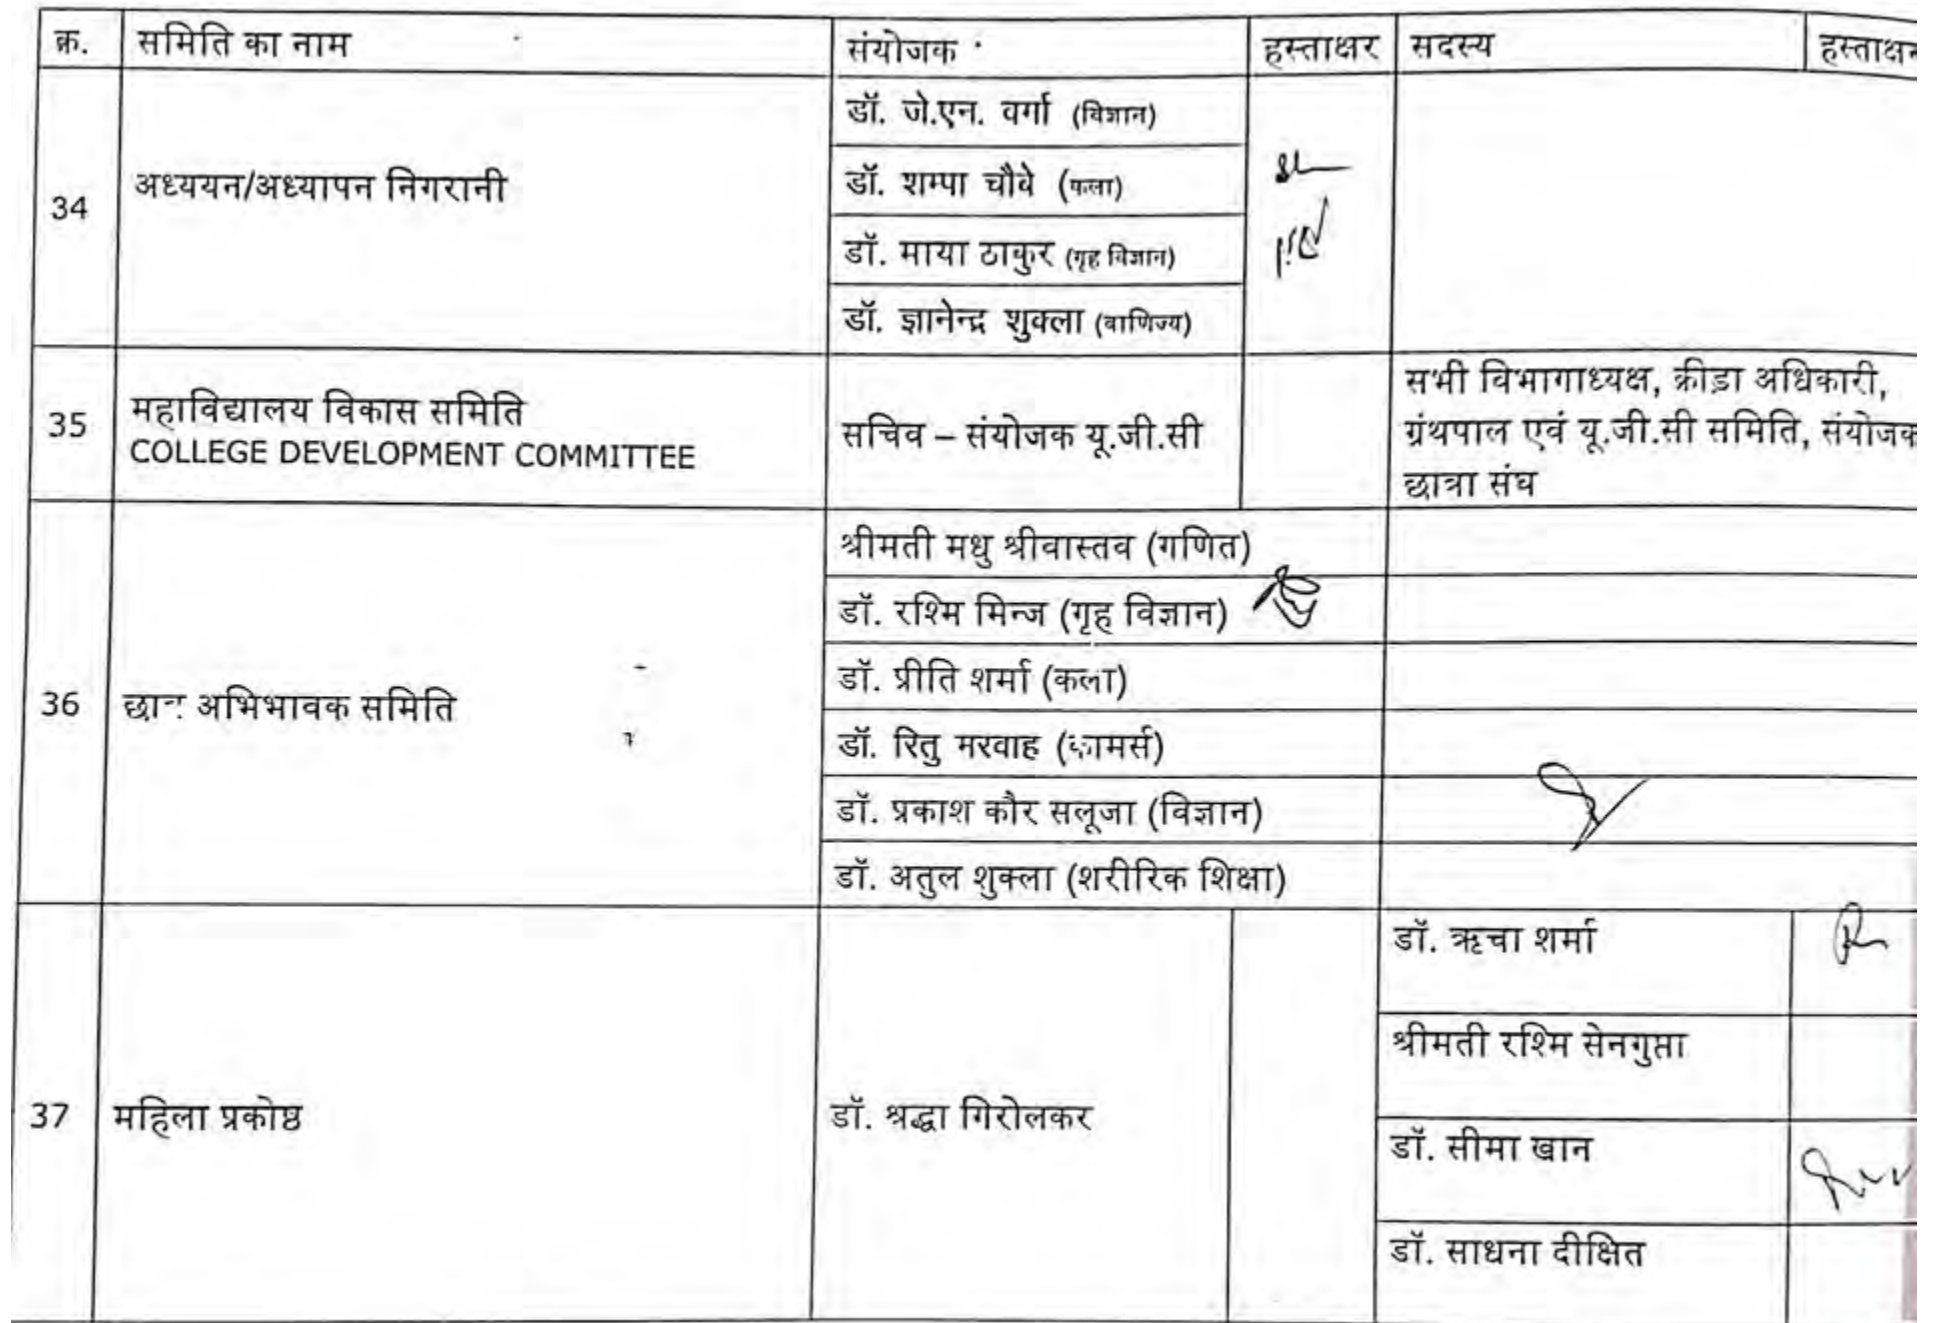 क्र. समिति का नाम संयोजक हस्ताक्षर सदस्य
डॉ. जे.एन. वर्मा (विज्ञान)
34 अध्ययन/अध्यापन निगरानी
डॉ. शम्पा चौबे (कला)
डॉ. माया ठाकुर (गृह विज्ञान)
डॉ. ज्ञानेन्द्र शुक्ला (वाणिज्य)
35 महाविद्यालय विकास समिति
COLLEGE DEVELOPMENT COMMITTEE
सचिव – संयोजक यू.जी.सी
सभी विभागाध्यक्ष, क्रीड़ा अधिकारी,
ग्रंथपाल एवं यू.जी.सी समिति, संयोजक
छात्रा संघ
श्रीमती मधु श्रीवास्तव (गणित)
डॉ. रश्मि मिन्ज (गृह विज्ञान)
डॉ. प्रीति शर्मा (कला)
36 अभिभावक समिति
डॉ. रितु मरवाह (कामर्स)
डॉ. प्रकाश कौर सलूजा (विज्ञान)
डॉ. अतुल शुक्ला (शरीरिक शिक्षा)
37 महिला प्रकोष्ठ
डॉ. श्रद्धा गिरोलकर
डॉ. ऋचा शर्मा
श्रीमती रश्मि सेनगुप्ता
डॉ. सीमा खान
डॉ. साधना दीक्षित